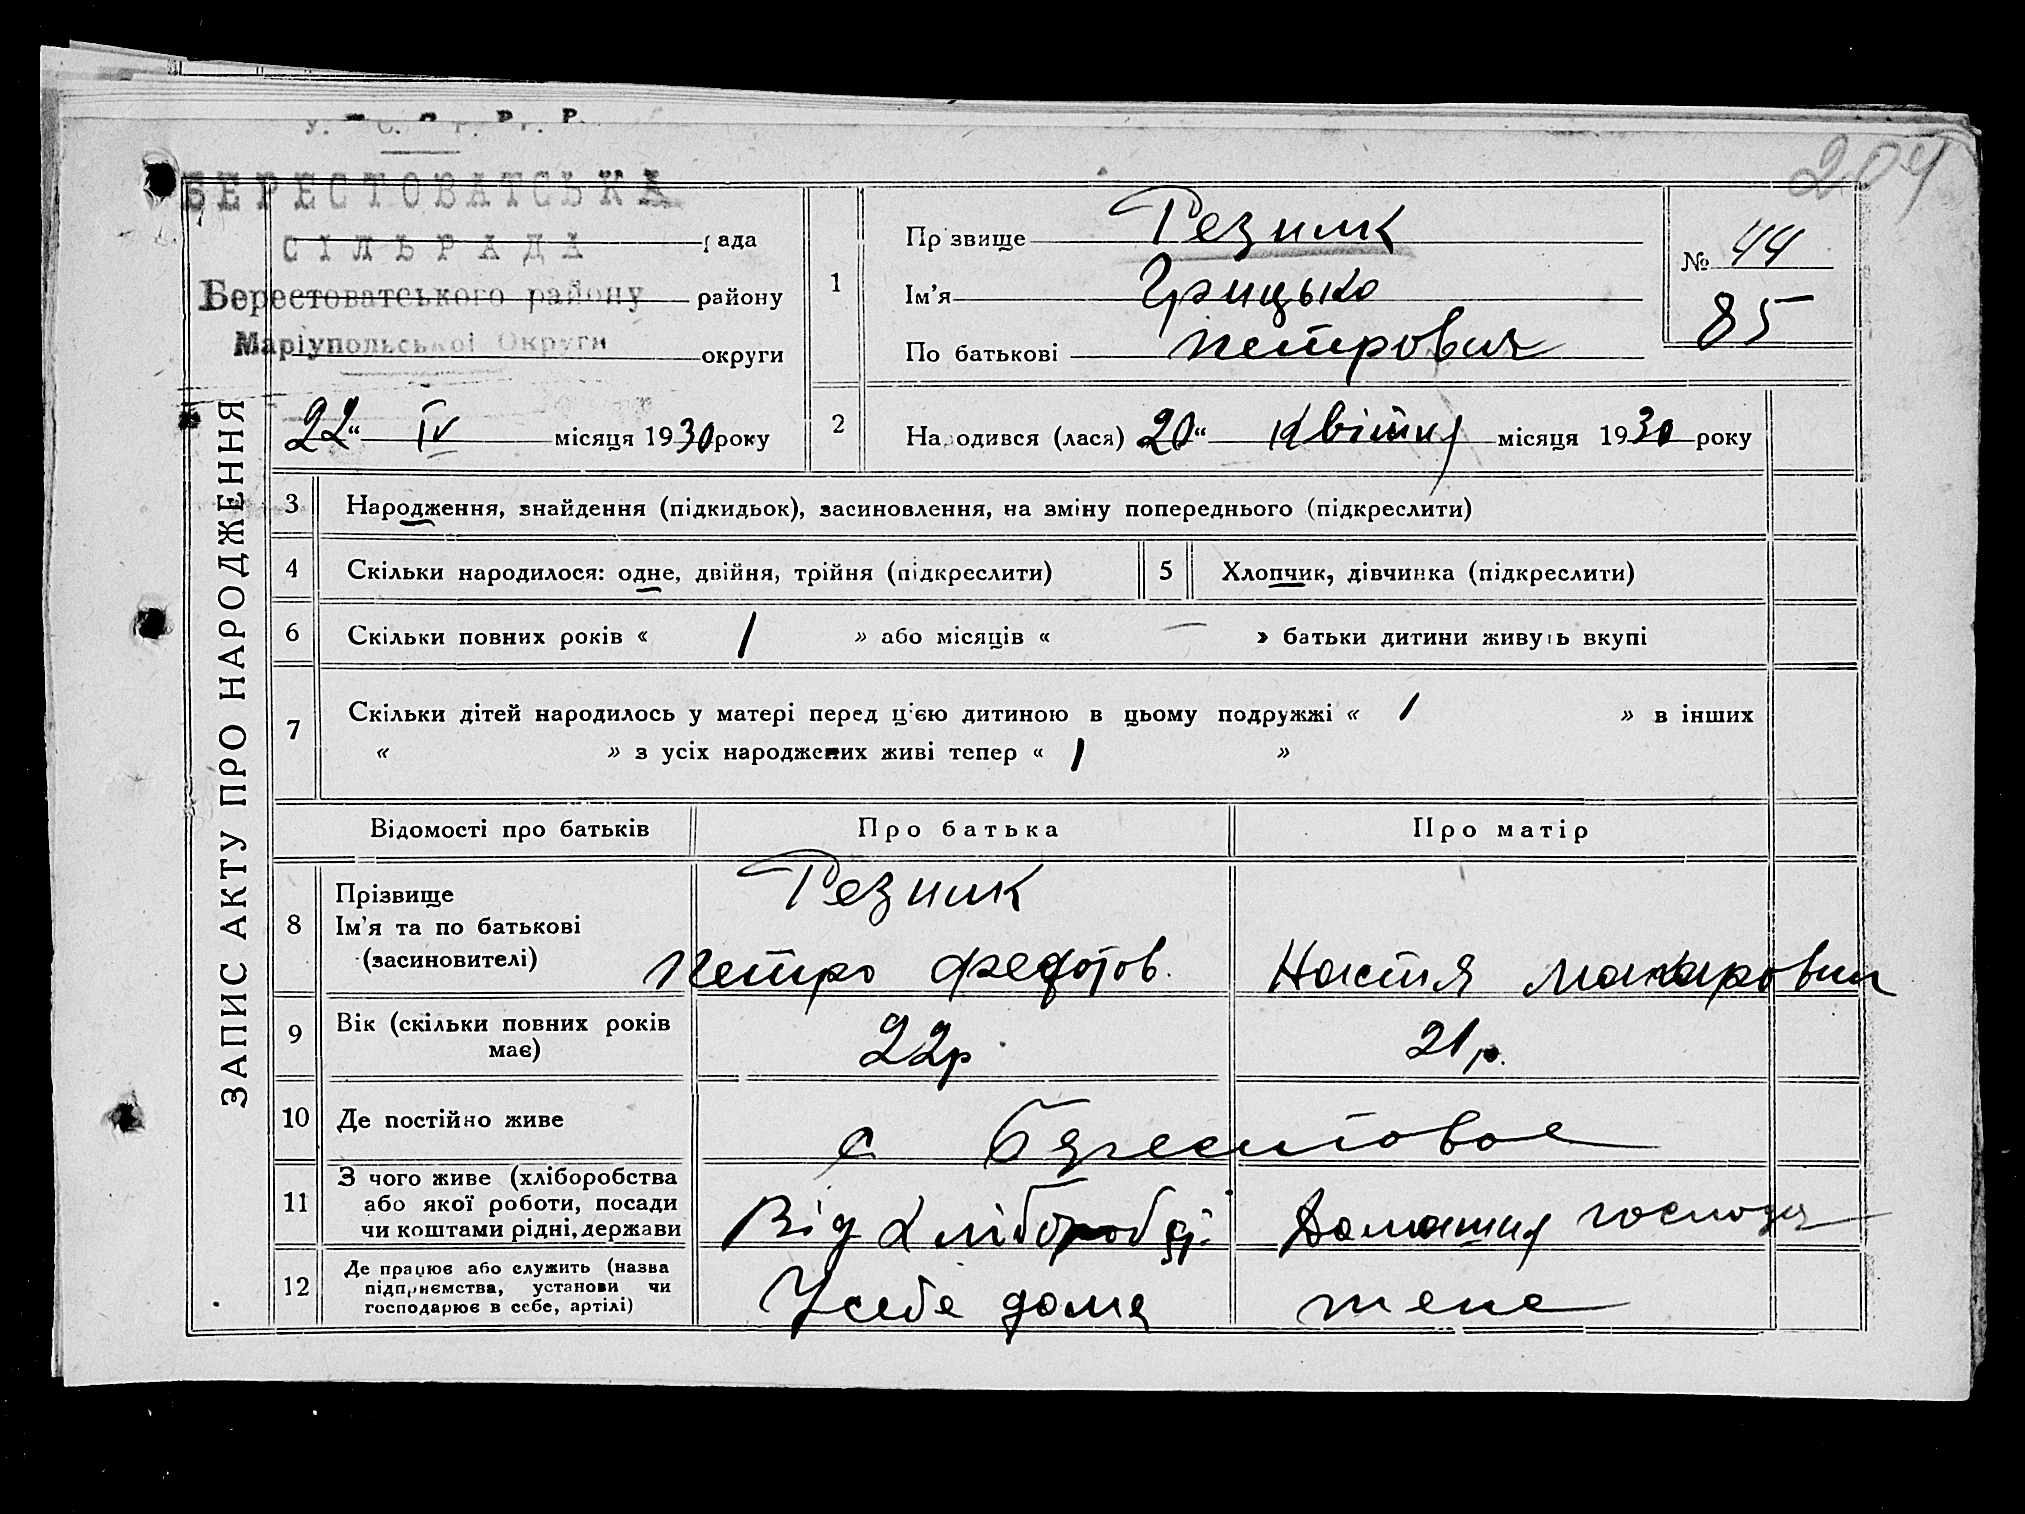 У. С. Р. Р.
204
БЕРЕСТОВАТСЬКА
СІЛЬРАДА
рада
Берестоватського району
району
Маріупольської Округи
округи
22 “ IV місяця 1930 року
ЗАПИС АКТУ ПРО НАРОДЖЕННЯ
1
Прізвище Резник
Ім’я Грицько
По батькові Петрович
№ 44
85
2 Народився (лася) 20 “ Квітня місяця 1930 року
3 Народження, знайдення (підкидьок), засиновлення, на зміну попереднього (підкреслити)
4 Скільки народилося: одне, двійня, трійня (підкреслити) 5 Хлопчик, дівчинка (підкреслити)
6 Скільки повних років « 1 » або місяців « — » батьки дитини живуть вкупі
7 Скільки дітей народилось у матері перед ц’єю дитиною в цьому подружжі « 1 » в інших
« » з усіх народжених живі тепер « 1 »
Відомості про батьків Про батька Про матір
8 Прізвище
Ім’я та по батькові
(засиновителі)
Резник
Петро Федотов. Настя Макаровна
9 Вік (скільки повних років
має)
22р. 21р.
10 Де постійно живе с Берестовое
11 З чого живе (хліборобства
або якої роботи, посади
чи коштами рідні, держави
Від хліборобст. Домашня господ
12 Де працює або служить (назва
підприємства, установи чи
господарює в себе, артілі)
У себе дома теже